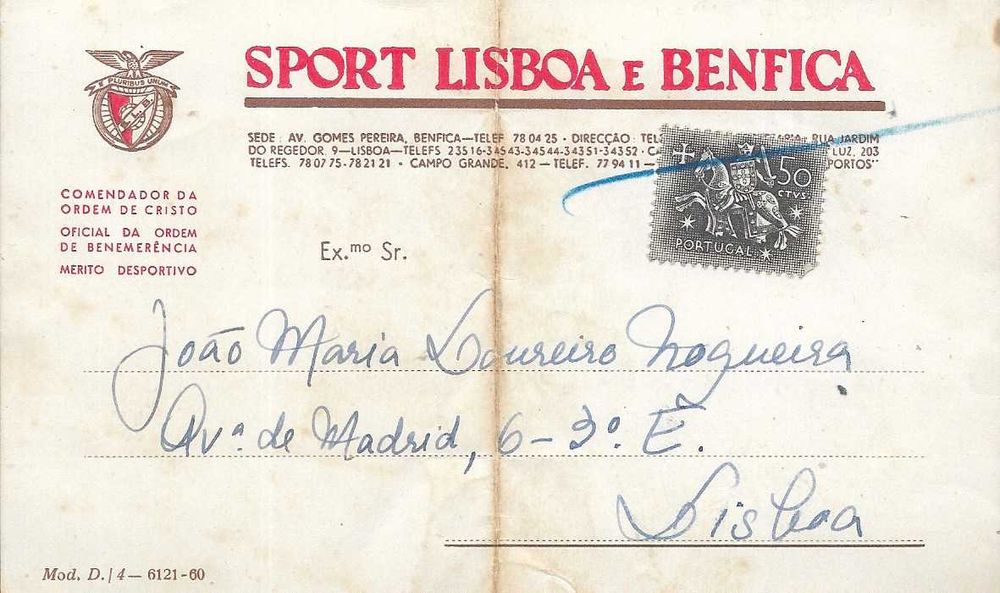 E PLURIBUS UNUM
SPORT LISBOA E BENFICA
SEDE: AV. GOMES PEREIRA, BENFICA—TELEF 78 04 25 · DIRECÇÃO RUA JARDIM
DO REGEDOR, 9—LISBOA—TELEFS 2 35 16-3 45 43-345 44-3 43 51-3 43 52 · LUZ, 203
TELEFS. 78 07 75-78 21 21 · CAMPO GRANDE, 412 — TELEF. 77 94 11 — PORTOS"
50
CTVS
PORTUGAL
COMENDADOR DA
ORDEM DE CRISTO
OFICIAL DA ORDEM
DE BENEMERÊNCIA
MERITO DESPORTIVO
Ex.mo Sr.
João Maria Loureiro Nogueira
Avª. de Madrid, 6-3º. E.
Lisboa
Mod. D./4— 6121-60